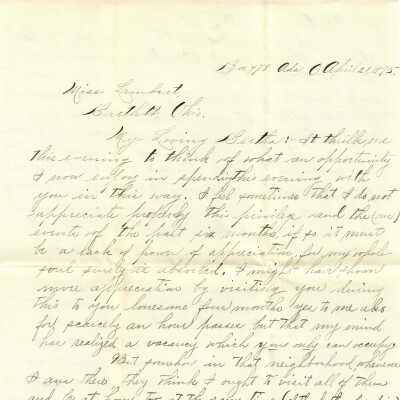 April 21, 1895.
Miss Lambert,
Bartlett, Ohio.
My Loving Bertha:- It thrills me
this evening to think of what an opportunity
I now enjoy in spending this evening with
you in this way. I feel sometimes that I do not
appreciate properly this privilege and the (our)
events of the past six months if so it must
be a lack of power of appreciation for my whole
soul surely is absorbed. I might have shown
more appreciation by visiting you during
this to you lonesome four months yes to me also
for scarcely an hour passes but that my mind
has realized a vacancy which you only can occupy.
But somehow in that neighborhood whenever
I am there they think I ought to visit all of them
and be at home too at the same time